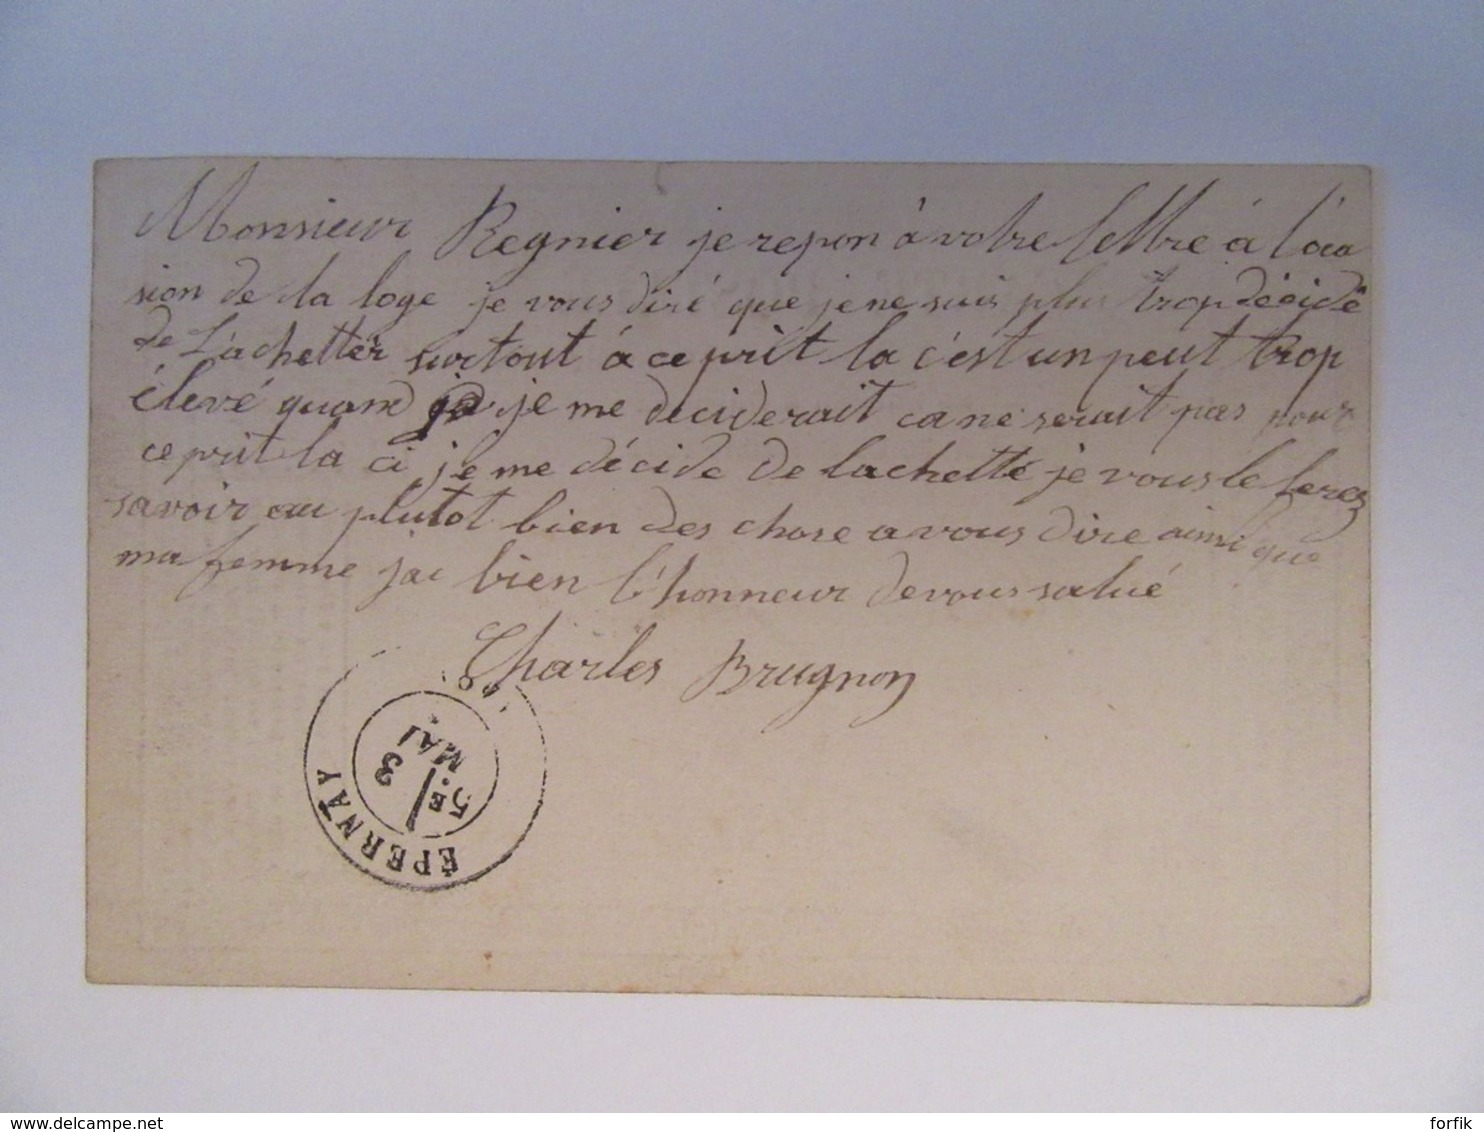 Monsieur Regnier je repon à votre lettre à l'oca
sion de la loge je vous diré que je ne suis plus trop décidé
de L'achetter surtout à ce prit la c'est un peut trop
élevé quand je je me deciderait ca ne serait pas pour
ce prit la ci je me décide de lachetté je vous le ferez
savoir au plutot bien des chose a vous dire ainsi que
ma femme jai bien l'honneur de vous salué
Charles Brugnon
ÉPERNAY
5E
3
MAI
delcampe.net
forfik